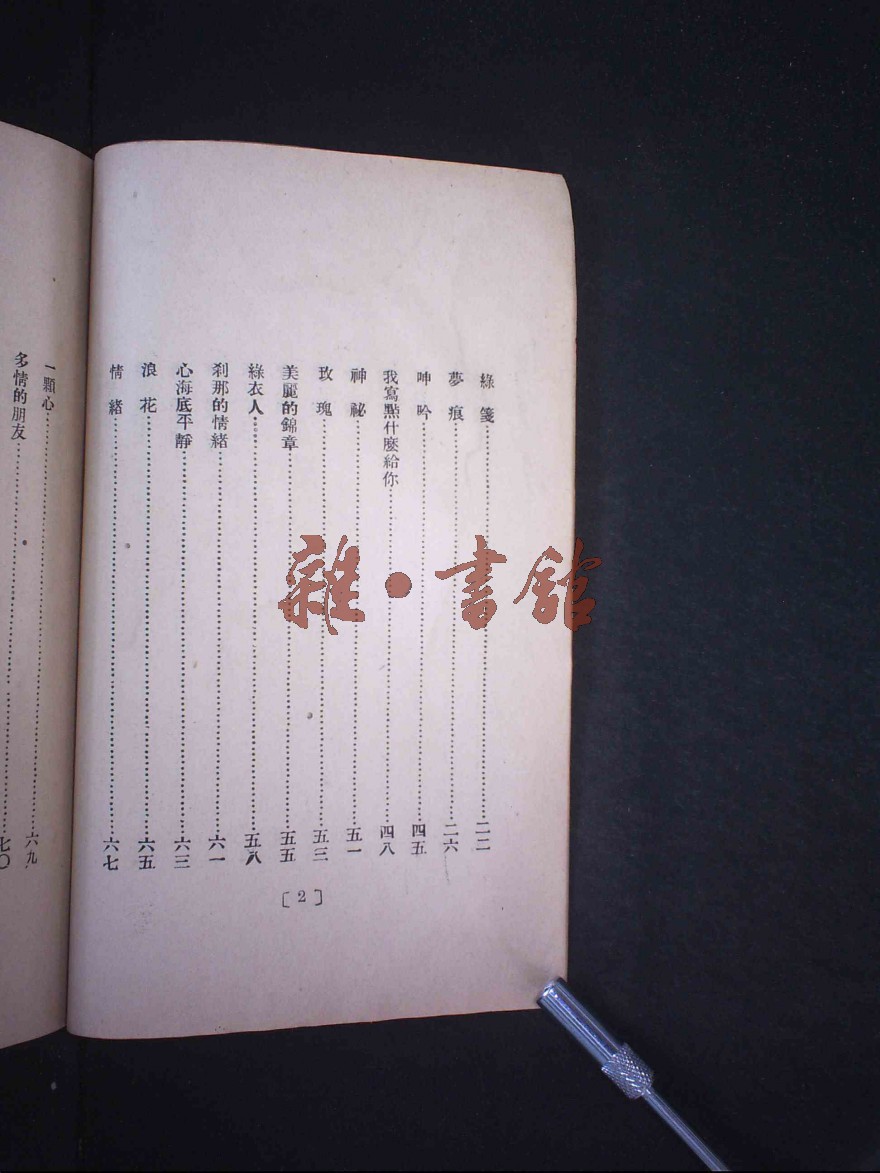 綠箋……二二
夢痕……二六
呻吟……四五
我寫點什麼給你……四八
神祕……五一
玫瑰……五三
美麗的錦章……五五
綠衣人……五八
刹那的情緒……六一
心海底平靜……六三
浪花……六五
情緒……六七
〔2〕
一顆心……六九
多情的朋友……七〇
雜·書舘